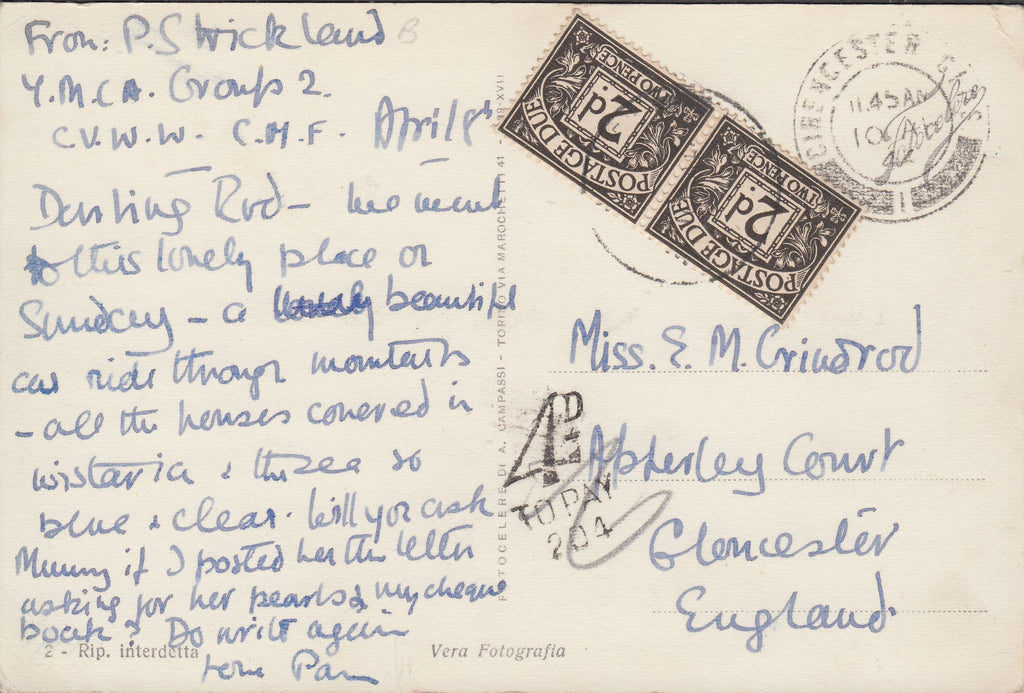 From: P. Strickland
Y.M.C.A. Groups 2.
C.V.W.W. C.M.F. April 8th
Darling Rod - we went
to this lonely place on
Sunday - a beautiful
car ride through mountains
- all the houses covered in
wistaria & the sea so
blue & clear. Will you ask
Mummy if I posted her the letter
asking for her pearls & my cheque
book? Do write again
love Pam
2 - Rip. interdetta
Vera Fotografia
FOTOCELERE DI A. CAMPASSI - TORINO VIA MAROCHETTI 41 -
POSTAGE DUE
2d.
TWO PENCE
POSTAGE DUE
2d.
TWO PENCE
CIRENCESTER
11.45 AM
10
4D
TO PAY
204
Miss. E. M. Grindrod
Apperley Court
Gloucester
England.